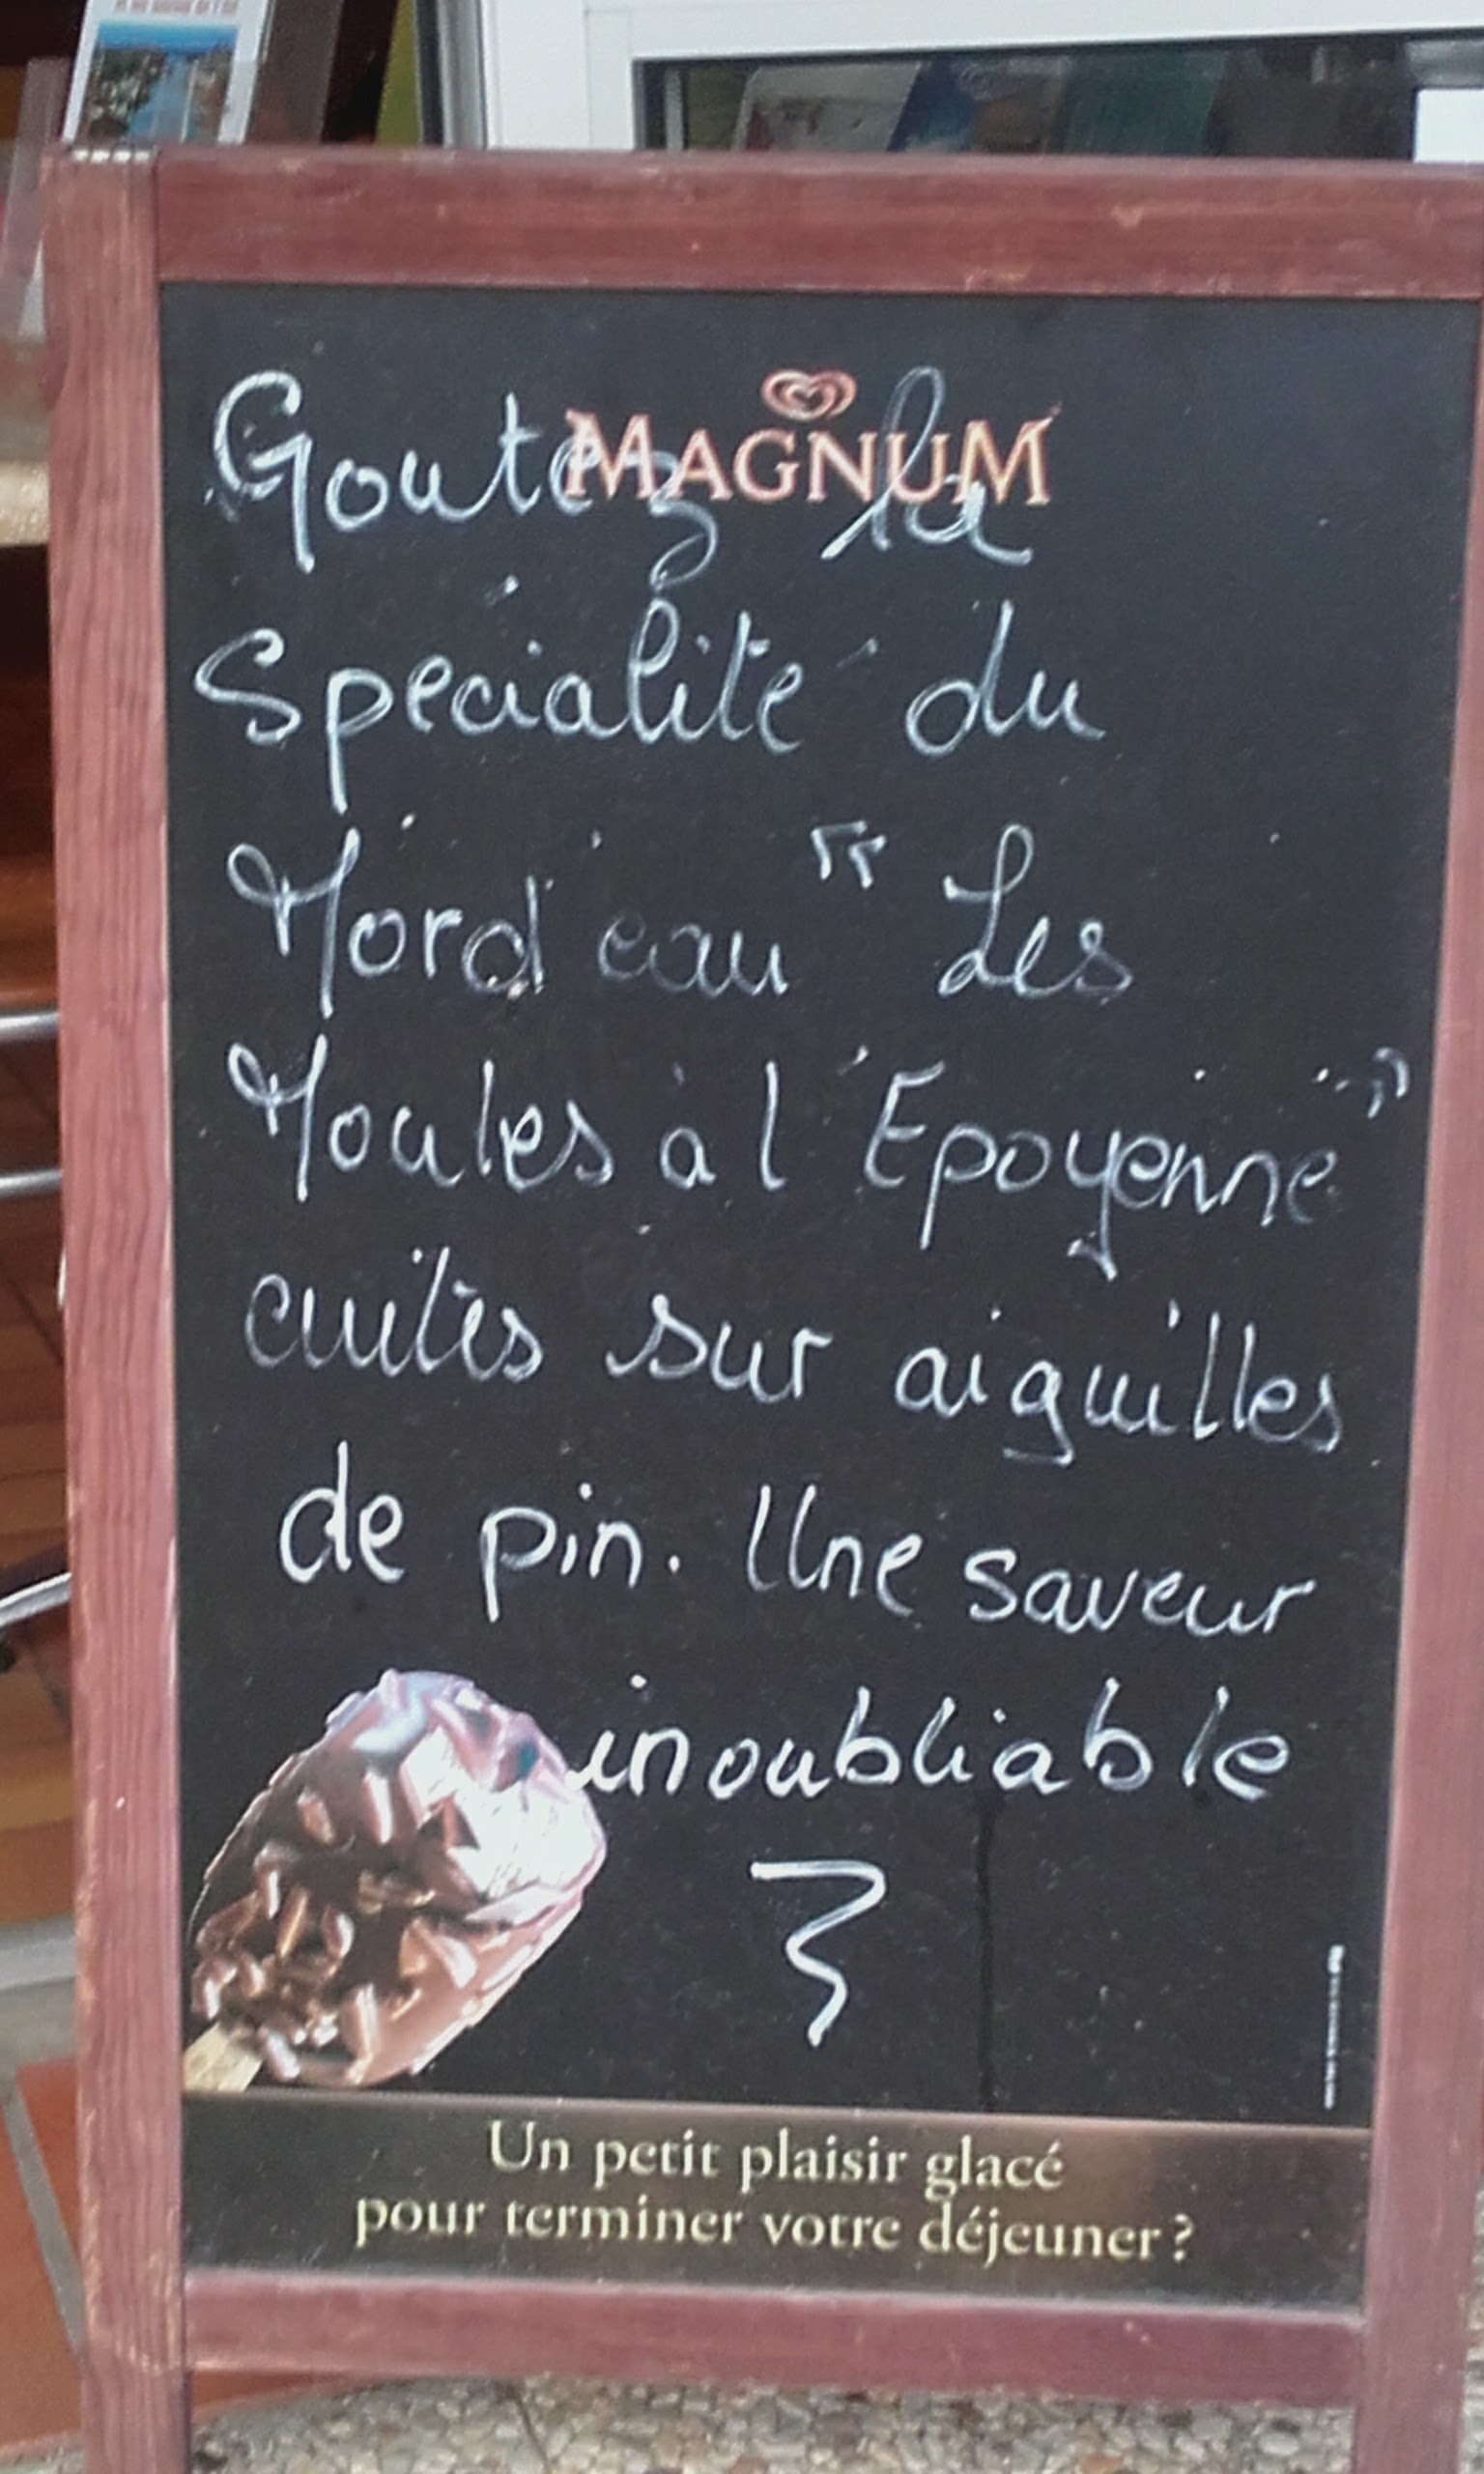 MAGNUM
Goutez la
Specialité du
Mord'eau " Les
Moules à l'Epoyenne"
cuites sur aiguilles
de pin. Une saveur
inoubliable
Un petit plaisir glacé
pour terminer votre déjeuner ?